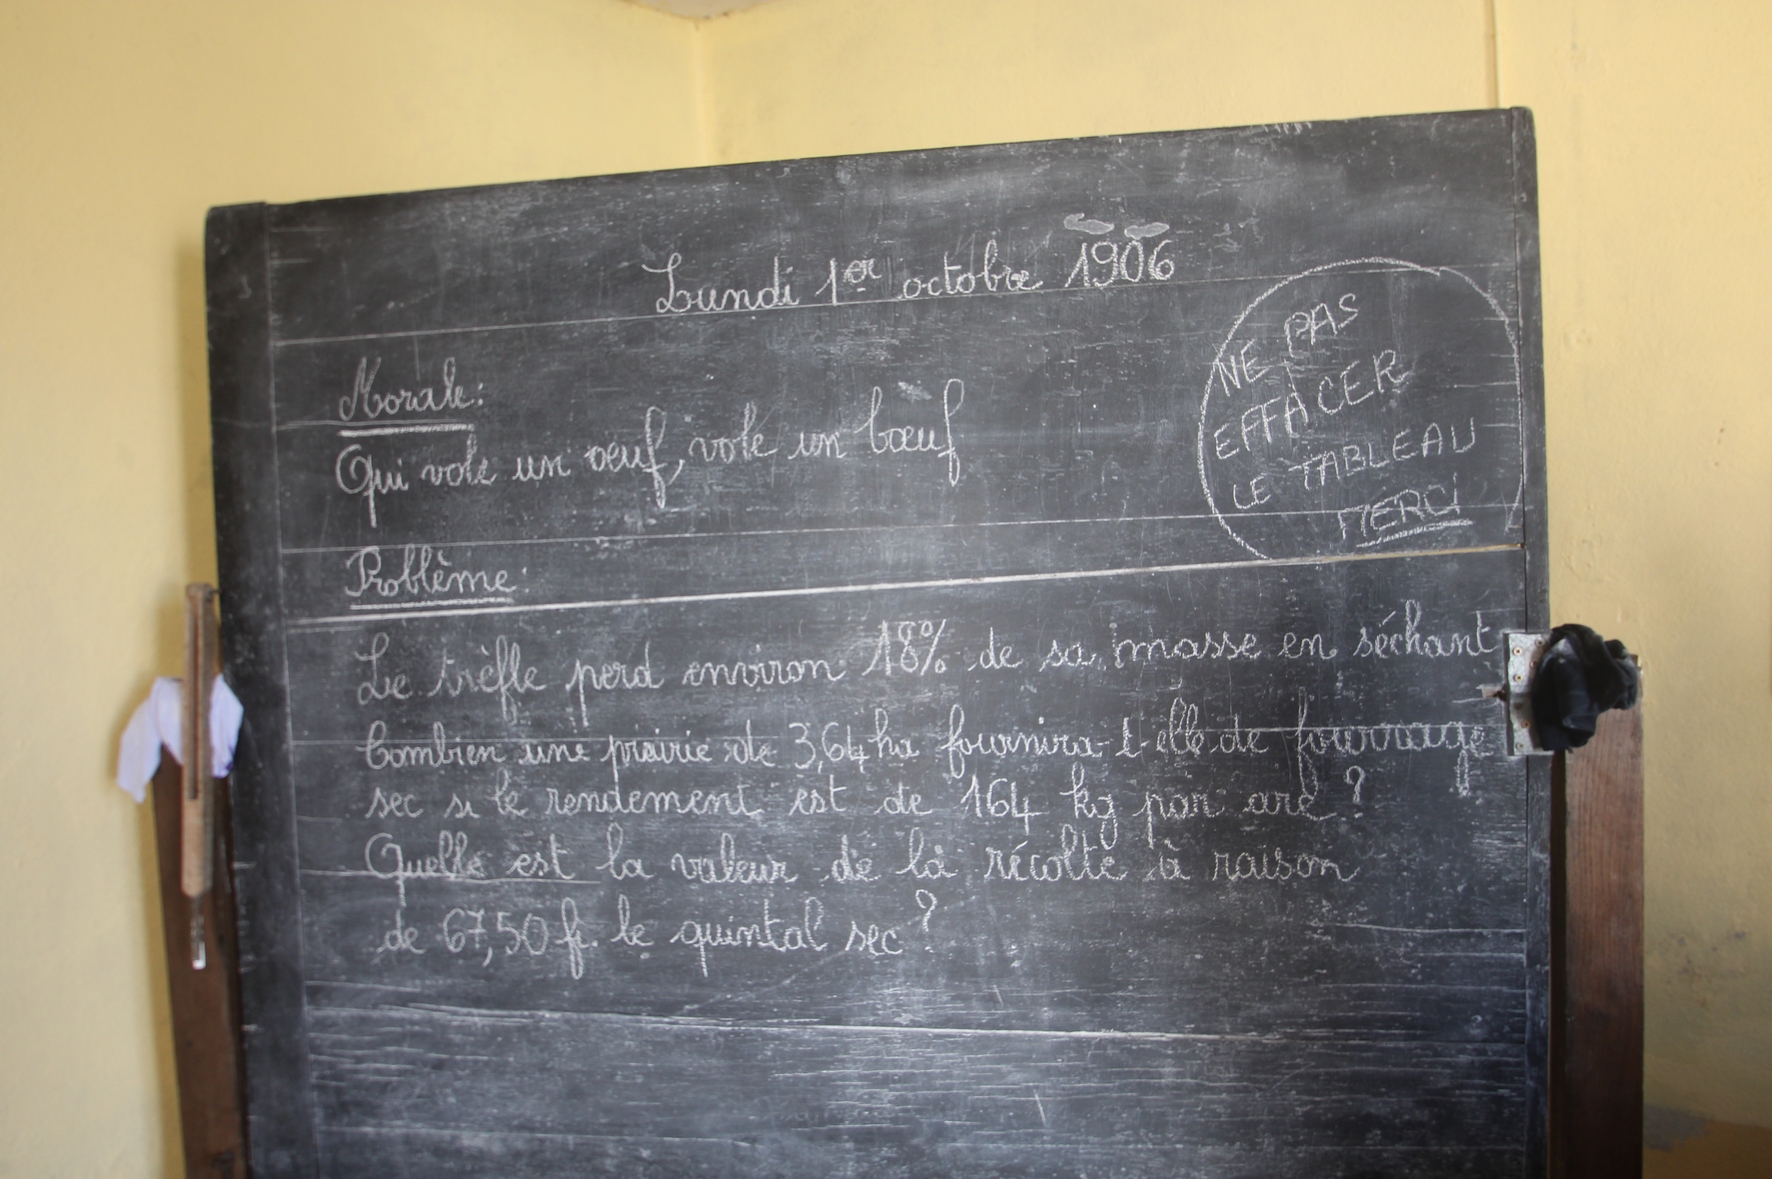 Lundi 1er octobre 1906
NE PAS
EFFACER
LE TABLEAU
MERCI
Morale:
Qui vole un œuf, vole un bœuf
Problème:
Le trèfle perd environ 18% de sa masse en séchant
Combien une prairie de 3,64 ha fournira-t-elle de fourrage
sec si le rendement est de 164 kg par are ?
Quelle est la valeur de la récolte à raison
de 67,50 fr. le quintal sec ?